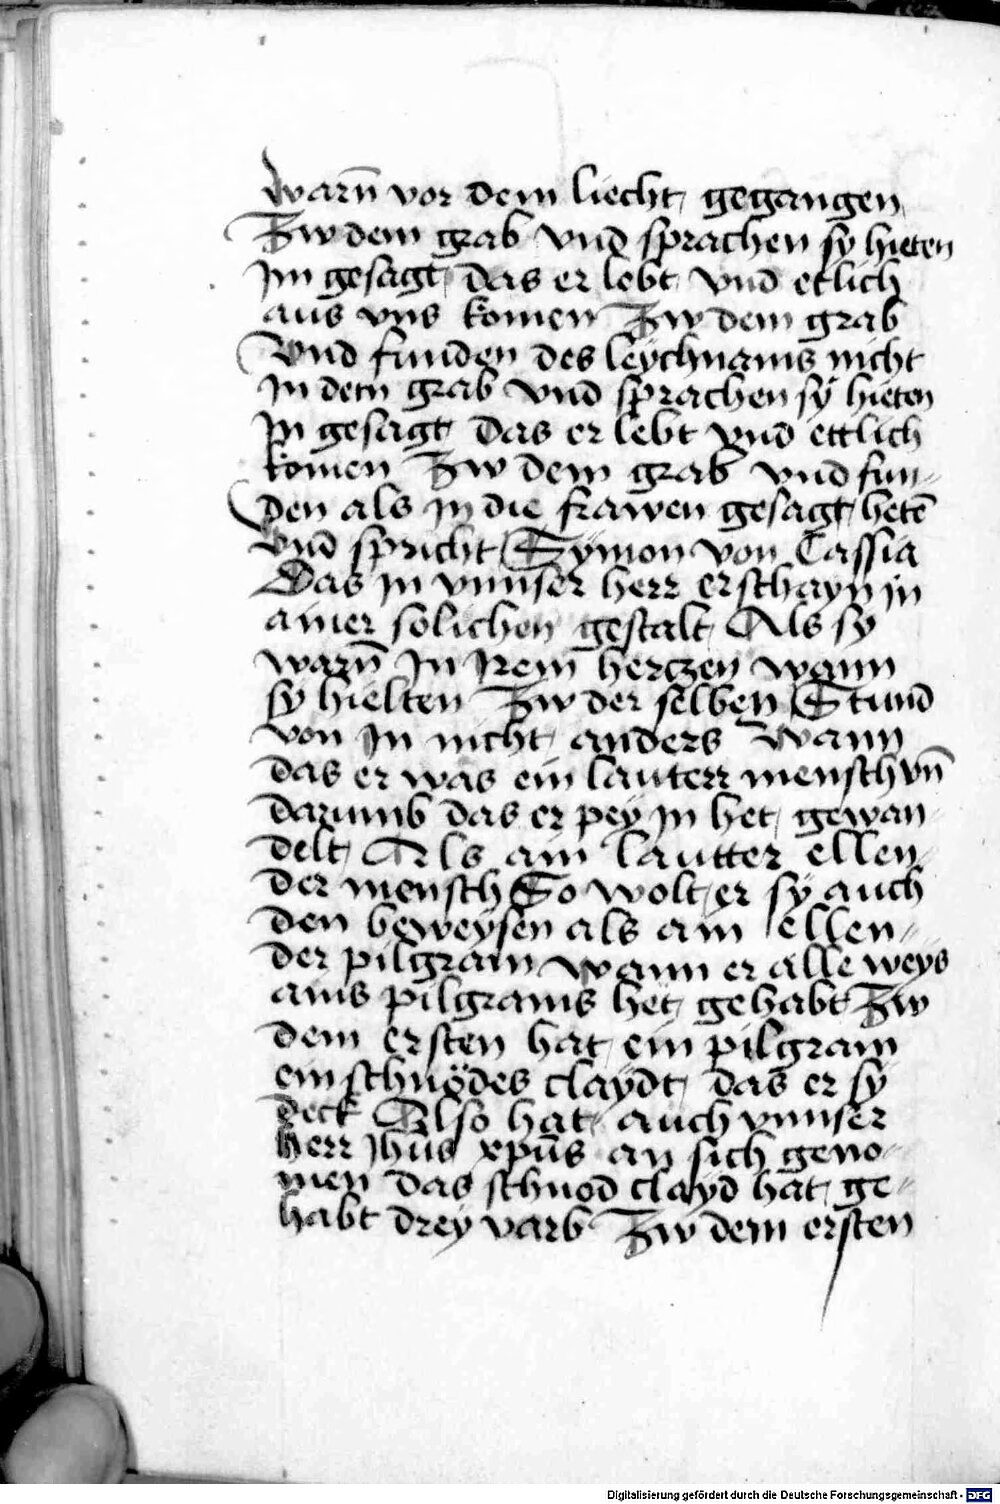 warn̄ vor dem liecht gegangen
Zw dem grab vnd sprachen sy hieten
Im gesagt das er lebt vnd etlich
aus vns komen Zw dem grab
Vnd funden des leychnams nicht
In dem grab vnd sprachen sy hieten
In gesagt das er lebt vnd ettlich
komen Zw dem grab vnd fun-
den als In die frawen gesagt hetē
vnd spricht Symon von Cassia
Das In vnnser herr erschayn in
ainer solichen gestalt Als sy
warn̄ In Irem hertzen wann
sy hielten Zw der selben Stund
von In nicht anders Wann
das er was ein lauterr mensch vn̄
darumb das er pey In het gewan-
delt Als ain lautter ellen-
der mensch So wolt er sy auch
den beweysen als ain ellen-
der pilgram wann er alle weys
ains pilgrams het gehabt Zw
dem ersten hat ein pilgram
ein schnödes claydt das er sy
deck Also hat auch vnnser
herr Jhūs xpūs an sich geno-
men das schnod clayd hat ge-
habt drey varb Zw dem ersten
Digitalisierung gefördert durch die Deutsche Forschungsgemeinschaft - DFG